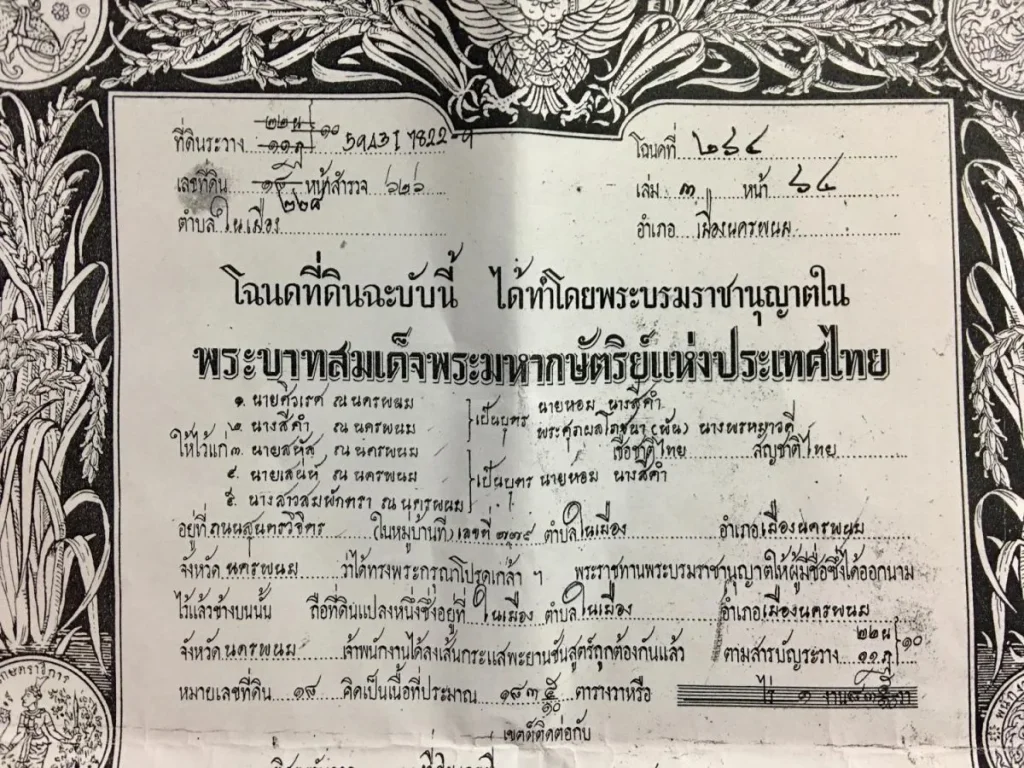 ๒๒ผ
ที่ดินระวาง ๑๑ภ ๑๐ 5943 I 7822-9 โฉนดที่ ๒๖๔
เลขที่ดิน ๑๘ หน้าสำรวจ ๖๒๖ เล่ม ๓ หน้า ๖๔
ตำบล ในเมือง อำเภอ เมืองนครพนม
โฉนดที่ดินฉะบับนี้ ได้ทำโดยพระบรมราชานุญาตใน
พระบาทสมเด็จพระมหากษัตริย์แห่งประเทศไทย
๑. นายศิวเรศ ณ นครพนม เป็นบุตร นายหอม นางสีคำ
๒. นางสีคำ ณ นครพนม นางพรหมาวดี
ให้ไว้แก่ ๓. นายสหัส ณ นครพนม เชื้อชาติ ไทย สัญชาติ ไทย
๔. นายเสน่ห์ ณ นครพนม เป็นบุตร นายหอม นางสีคำ
๕. นางสาวสมพักตรา ณ นครพนม
อยู่ที่ ถนนสุนทรวิจิตร (ในหมู่บ้านที่) เลขที่ ๗๗๙ ตำบล ในเมือง อำเภอ เมืองนครพนม
จังหวัด นครพนม ว่าได้ทรงพระกรุณาโปรดเกล้า ฯ พระราชทานพระบรมราชานุญาตให้ผู้มีชื่อซึ่งได้ออกนาม
ไว้แล้วข้างบนนั้น ถือที่ดินแปลงหนึ่งซึ่งอยู่ที่ ในเมือง ตำบล ในเมือง อำเภอ เมืองนครพนม
จังหวัด นครพนม เจ้าพนักงานได้ลงเส้นกระแสพะยานชันสูตร์ถูกต้องกันแล้ว ตามสารบัญระวาง ๒๒ผ ๑๑ภ ๑๐
หมายเลขที่ดิน ๑๘ คิดเป็นเนื้อที่ประมาณ ๑๘๓ ๕/๑๐ ตารางวาหรือ ไร่ ๑ งาน
เขตต์ติดต่อกับ